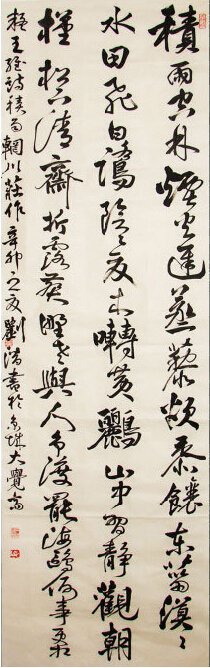 積雨空林煙火遲蒸藜炊黍饟東菑漠〻
水田飛白鷺陰〻夏木囀黃鸝山中習靜觀朝
槿松下清齋折露葵野老與人爭罷海鷗何事
王維詩積雨輞川莊作辛卯之夏劉書於大覺